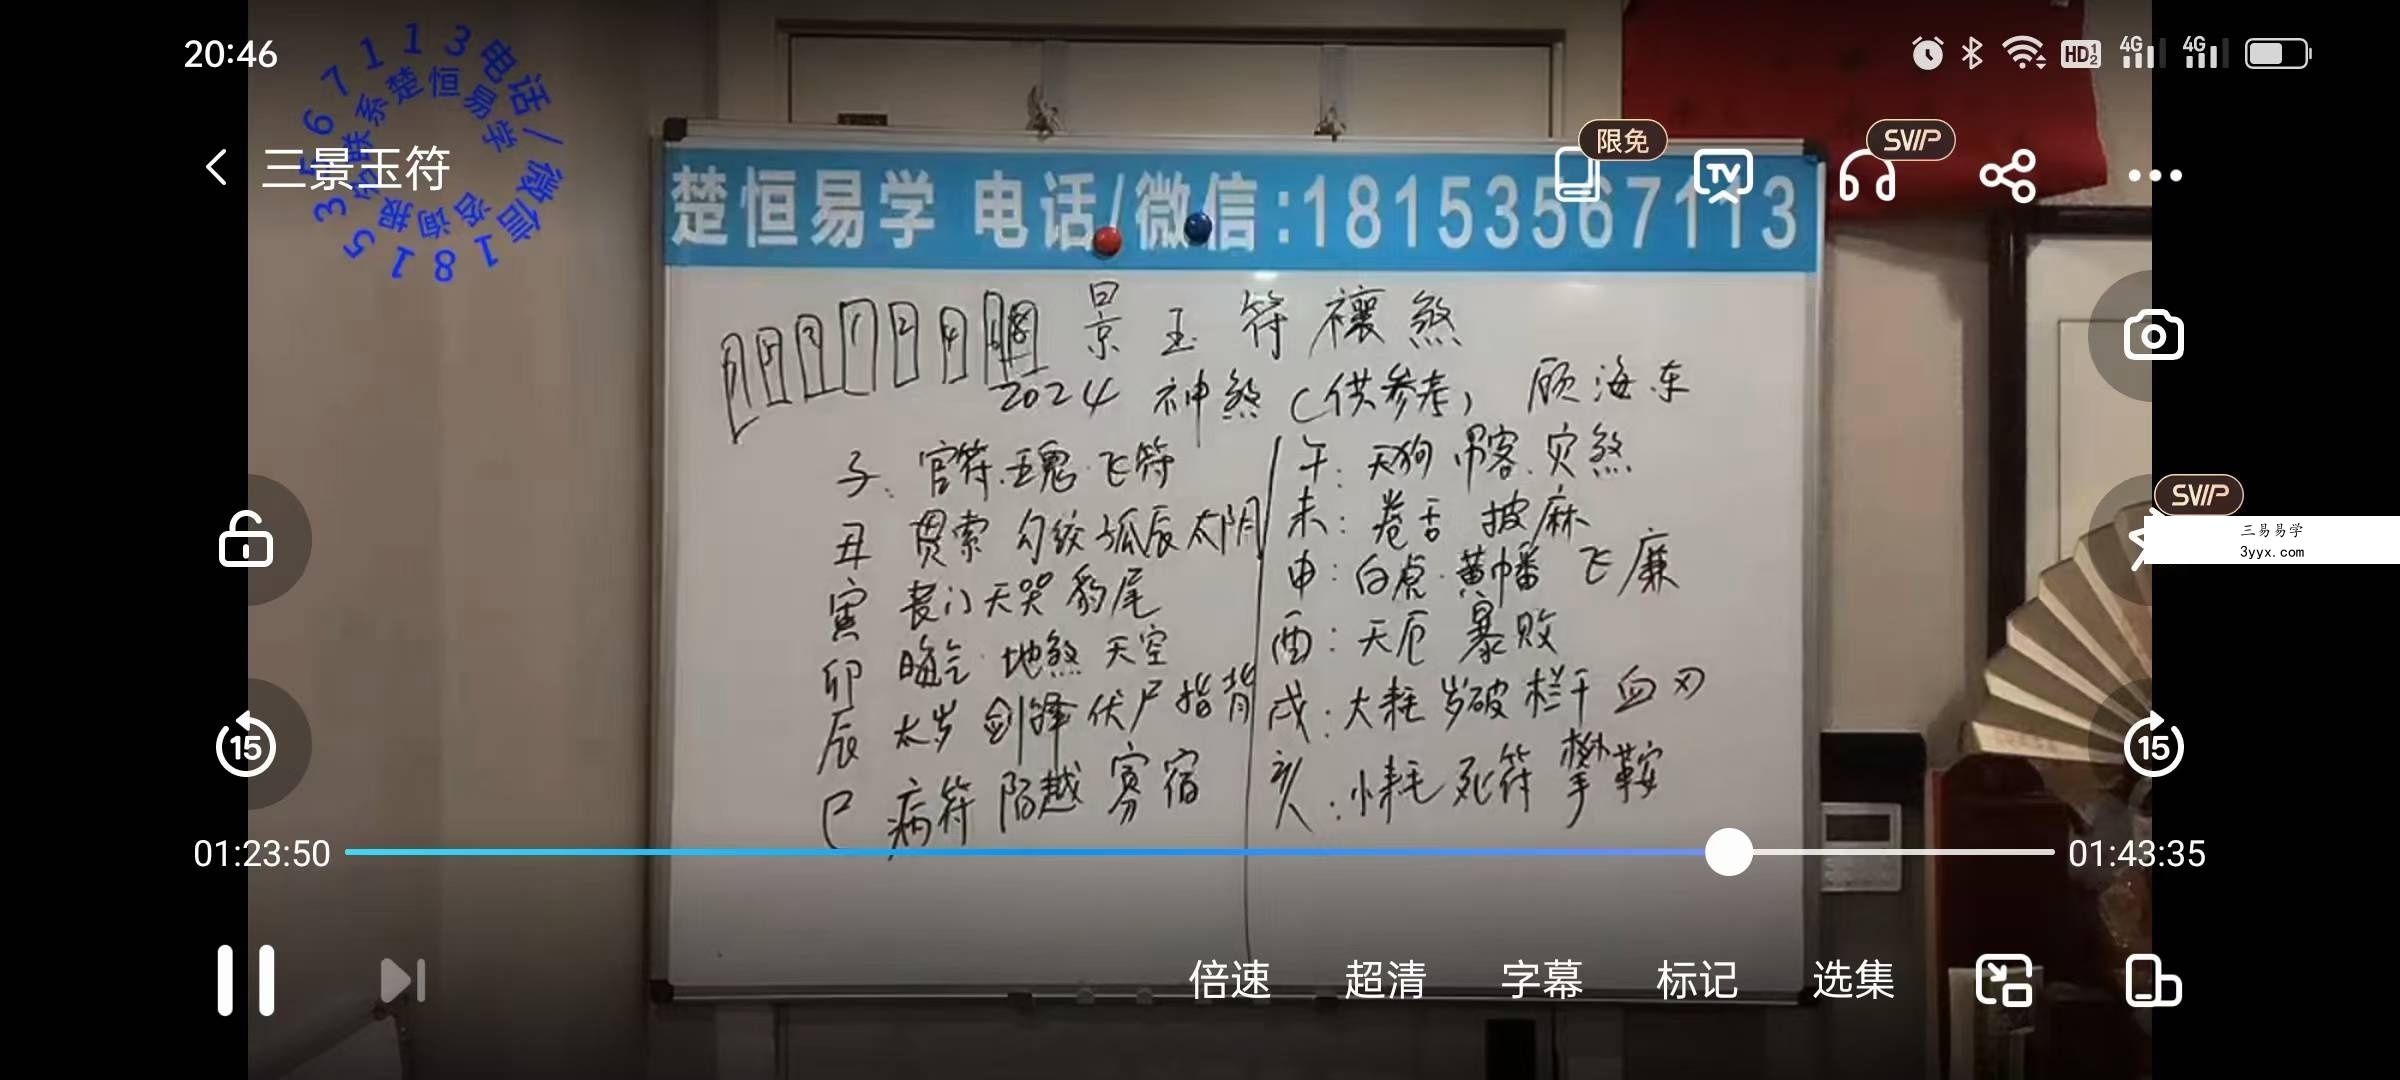 20:46
HD 1 2 4G 4G
三景玉符
限免
TV
SVIP
电话/微信18153567113
联系楚恒易学
咨询报
楚恒易学 电话/微信:18153567113
景玉符禳煞
5 3 1 2 4 6 8
2024 神煞(供参考) 顾海东
子: 官符.五鬼.飞符
丑 贯索 勾绞 孤辰 太阴
寅 丧门 天哭 豹尾
卯 晦气.地煞 天空
辰 太岁 剑锋 伏尸 指背
巳 病符 陌越 寡宿
午: 天狗 吊客.灾煞
未: 卷舌 披麻
申: 白虎.黄幡 飞廉
酉: 天厄 暴败
戌: 大耗 岁破 栏干 血刃
亥: 小耗 死符 攀鞍
SVIP
三易易学
3yyx.com
15
15
01:23:50
01:43:35
倍速 超清 字幕 标记 选集